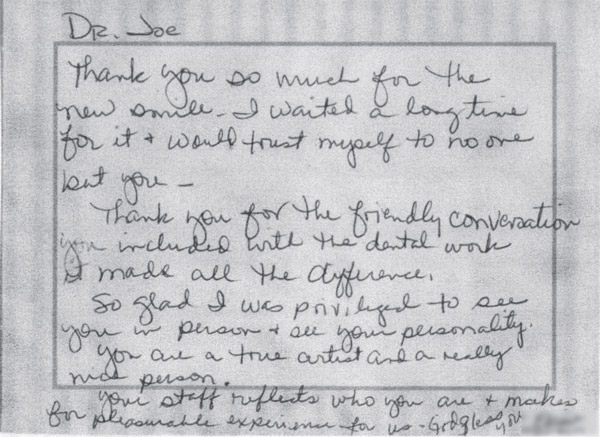 Dr. Joe
Thank you so much for the
new smile - I waited a long time
for it + would trust myself to no one
but you -
Thank you for the friendly conversation
you included with the dental work
it made all the difference.
So glad I was privileged to see
you in person + see your personality.
You are a true artist and a really
nice person.
Your staff reflects who you are + makes
for pleasurable experience for us - God bless you